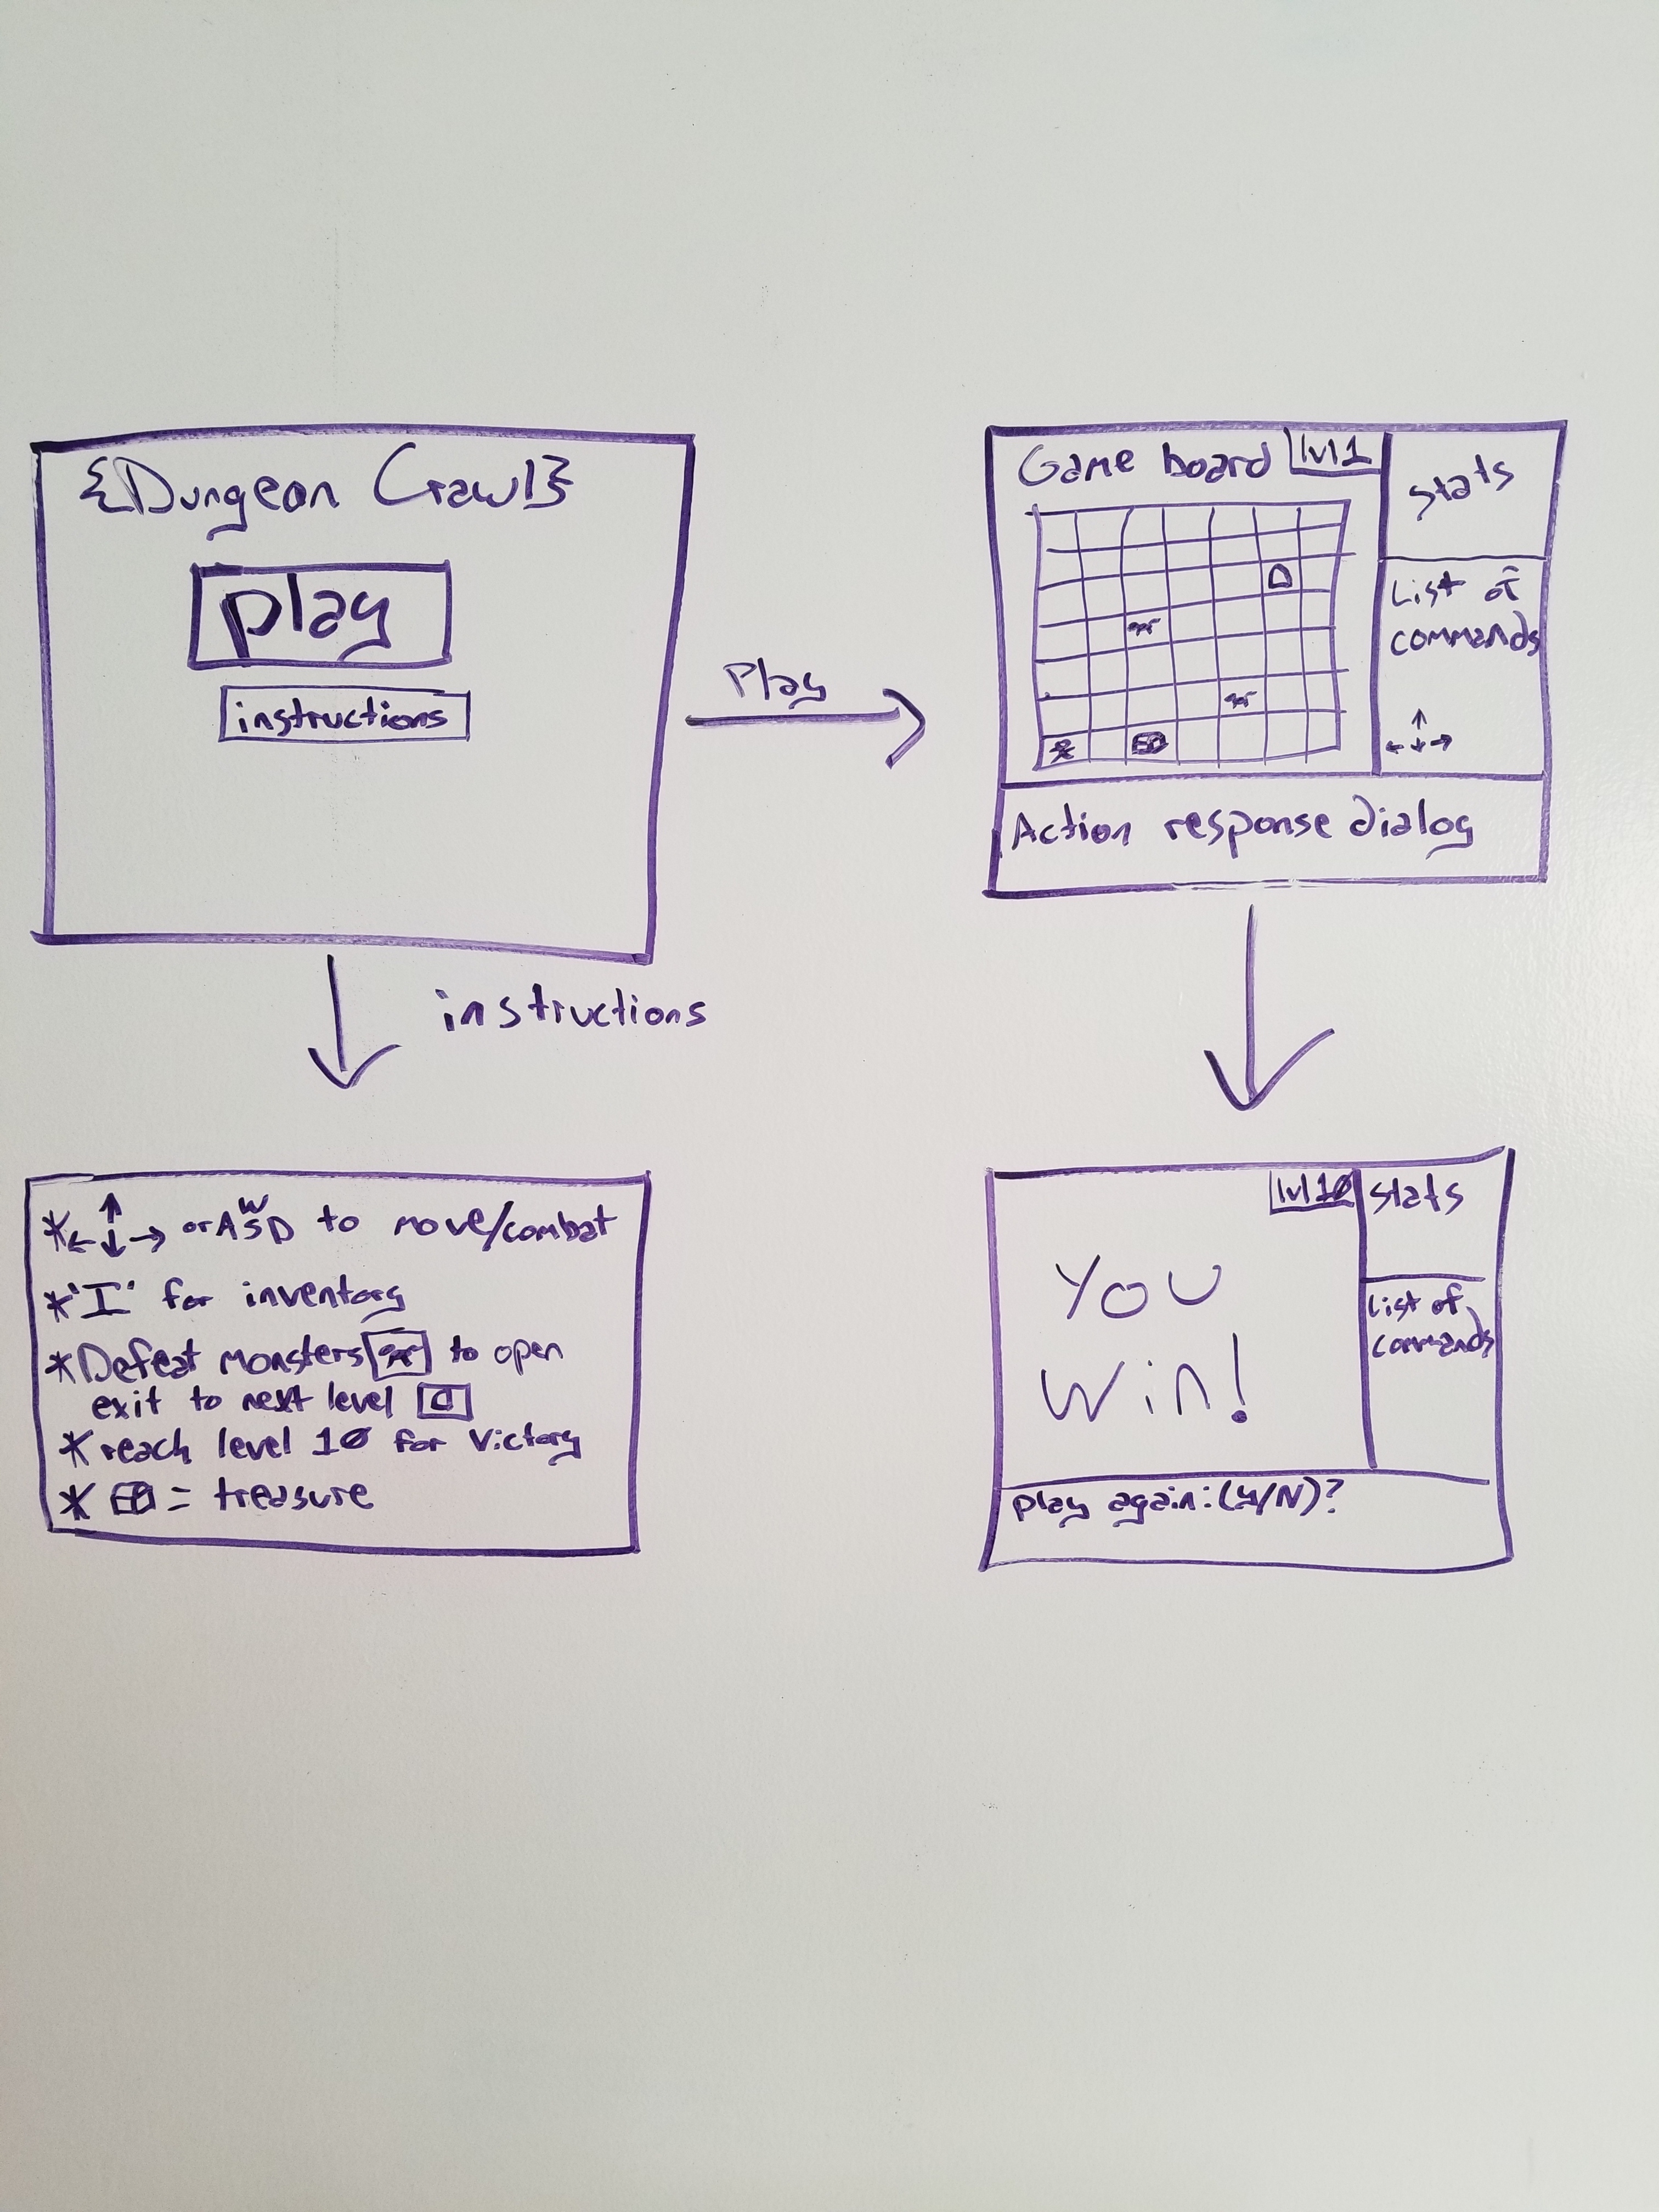 {Dungeon Crawl}
play
instructions
Play
Game board
lvl 1
stats
List of
commands
↑
← ↓ →
Action response dialog
instructions
* ← ↑ ↓ → or A W S D to move/combat
* 'I' for inventory
* Defeat monsters to open
exit to next level
* reach level 10 for victory
* = treasure
lvl 10
stats
YOU
Win!
list of
commands
play again: (y/N)?